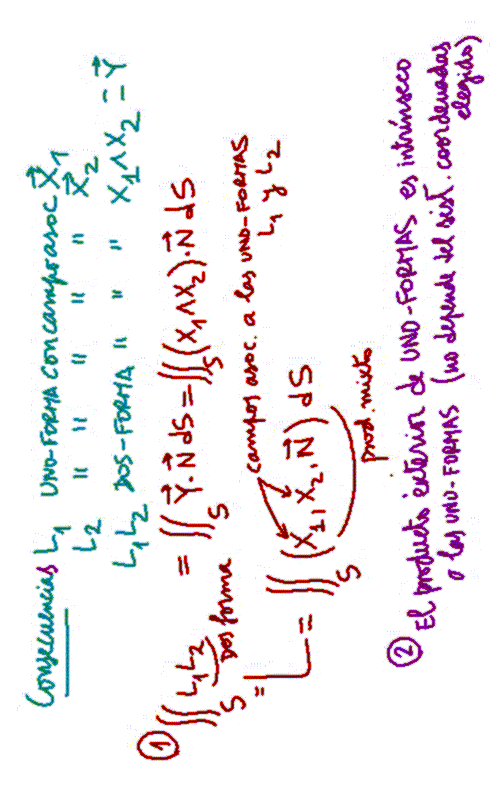 Consecuencias L₁ UNO-FORMA con campo asoc. X⃗₁
L₂ " " " " " X⃗₂
L₁L₂ DOS-FORMA " " " X₁∧X₂ = Y⃗
① ∬_S L₁L₂ = ∬_S Y⃗.N⃗ dS = ∬_S (X₁∧X₂).N⃗ dS
DOS forma
campos asoc. a las UNO-FORMAS
L₁ y L₂
= ∬_S (X⃗₁, X⃗₂, N⃗) dS
prod. mixto
② El producto exterior de UNO-FORMAS es intrínseco
a las UNO-FORMAS (no depende del sist. coordenadas
elegido)